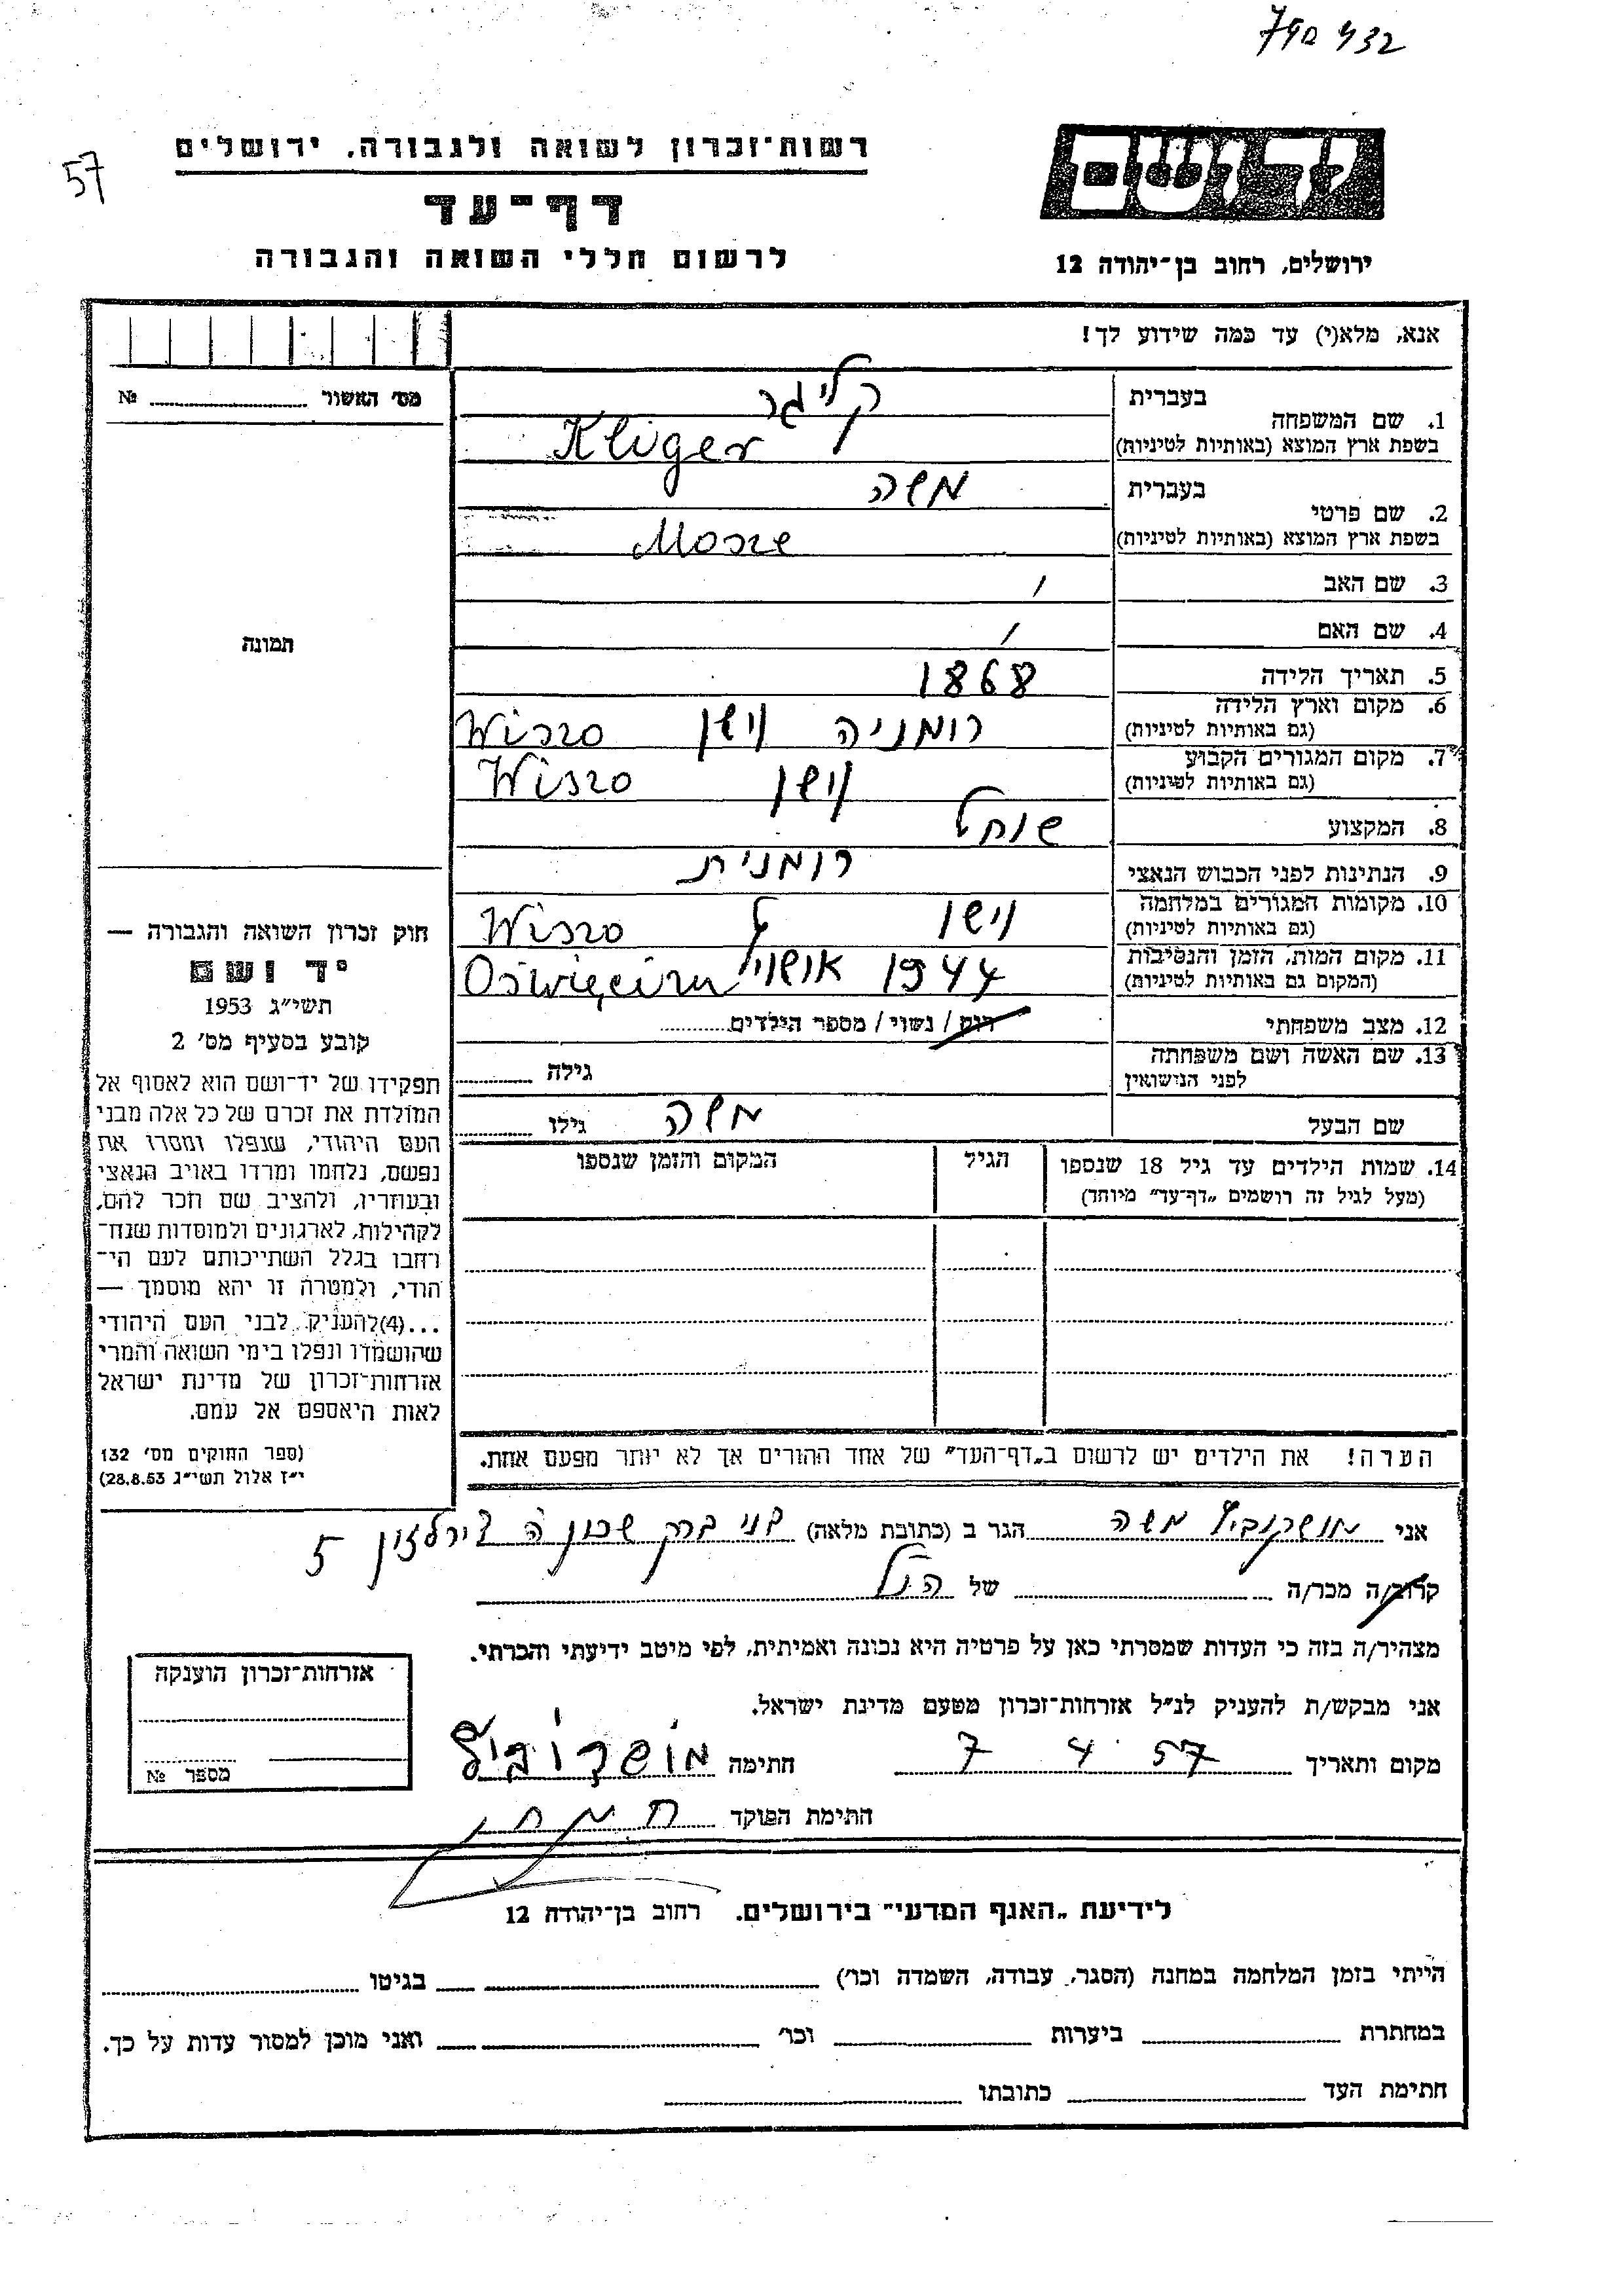 790432
57
רשות־זכרון לשואה ולגבורה, ירושלים
דף־עד
לרשום חללי השואה והגבורה
יד ושם
ירושלים, רחוב בן־יהודה 12
אנא, מלא(י) עד כמה שידוע לך!
מס׳ האשור № 
1. שם המשפחה
בעברית קליגר
בשפת ארץ המוצא (באותיות לטיניות) Klüger
2. שם פרטי
בעברית משה
בשפת ארץ המוצא (באותיות לטיניות) Mosze
3. שם האב /
4. שם האם /
5. תאריך הלידה 1868
6. מקום וארץ הלידה
(גם באותיות לטיניות) רומניה וישו Wiszo
7. מקום המגורים הקבוע
(גם באותיות לטיניות) וישו Wiszo
8. המקצוע שוחט
9. הנתינות לפני הכבוש הנאצי רומנית
10. מקומות המגורים במלחמה
(גם באותיות לטיניות) וישו Wiszo
11. מקום המות, הזמן והנסיבות
(המקום גם באותיות לטיניות) 1944 אושויץ Oświęcim
12. מצב משפחתי רוק / נשוי / מספר הילדים
13. שם האשה ושם משפחתה
לפני הנישואין גילה
שם הבעל משה גילו
14. שמות הילדים עד גיל 18 שנספו
(מעל לגיל זה רושמים „דף־עד” מיוחד)
הגיל
המקום והזמן שנספו
הערה! את הילדים יש לרשום ב„דף־העד” של אחד ההורים אך לא יותר מפעם אחת.
תמונה
חוק זכרון השואה והגבורה —
יד ושם
תשי״ג 1953
קובע בסעיף מס׳ 2
תפקידו של יד־ושם הוא לאסוף אל
המולדת את זכרם של כל אלה מבני
העם היהודי, שנפלו ומסרו את
נפשם, נלחמו ומרדו באויב הנאצי
ובעוזריו, ולהציב שם וזכר להם,
לקהילות, לארגונים ולמוסדות שנח־
רבו בגלל השתייכותם לעם הי־
הודי, ולמטרה זו יהא מוסמך —
...(4) להעניק לבני העם היהודי
שהושמדו ונפלו בימי השואה והמרי
אזרחות־זכרון של מדינת ישראל
לאות היאספם אל עמם.
(ספר החוקים מס׳ 132
י״ז אלול תשי״ג 28.8.53)
אני מושקוביץ משה הגר ב (כתובת מלאה) בני ברק שכון ה 5
קרוב/ה מכר/ה של הנ״ל
מצהיר/ה בזה כי העדות שמסרתי כאן על פרטיה היא נכונה ואמיתית, לפי מיטב ידיעתי והכרתי.
אני מבקש/ת להעניק לנ״ל אזרחות־זכרון מטעם מדינת ישראל.
מקום ותאריך 7 4 57 חתימה מושקוביץ
חתימת הפוקד
אזרחות־זכרון הוענקה
מספר №
לידיעת „האגף המדעי” בירושלים. רחוב בן־יהודה 12
הייתי בזמן המלחמה במחנה (הסגר, עבודה, השמדה וכו׳) בגיטו
במחתרת ביערות וכו׳ ואני מוכן למסור עדות על כך.
חתימת העד כתובתו